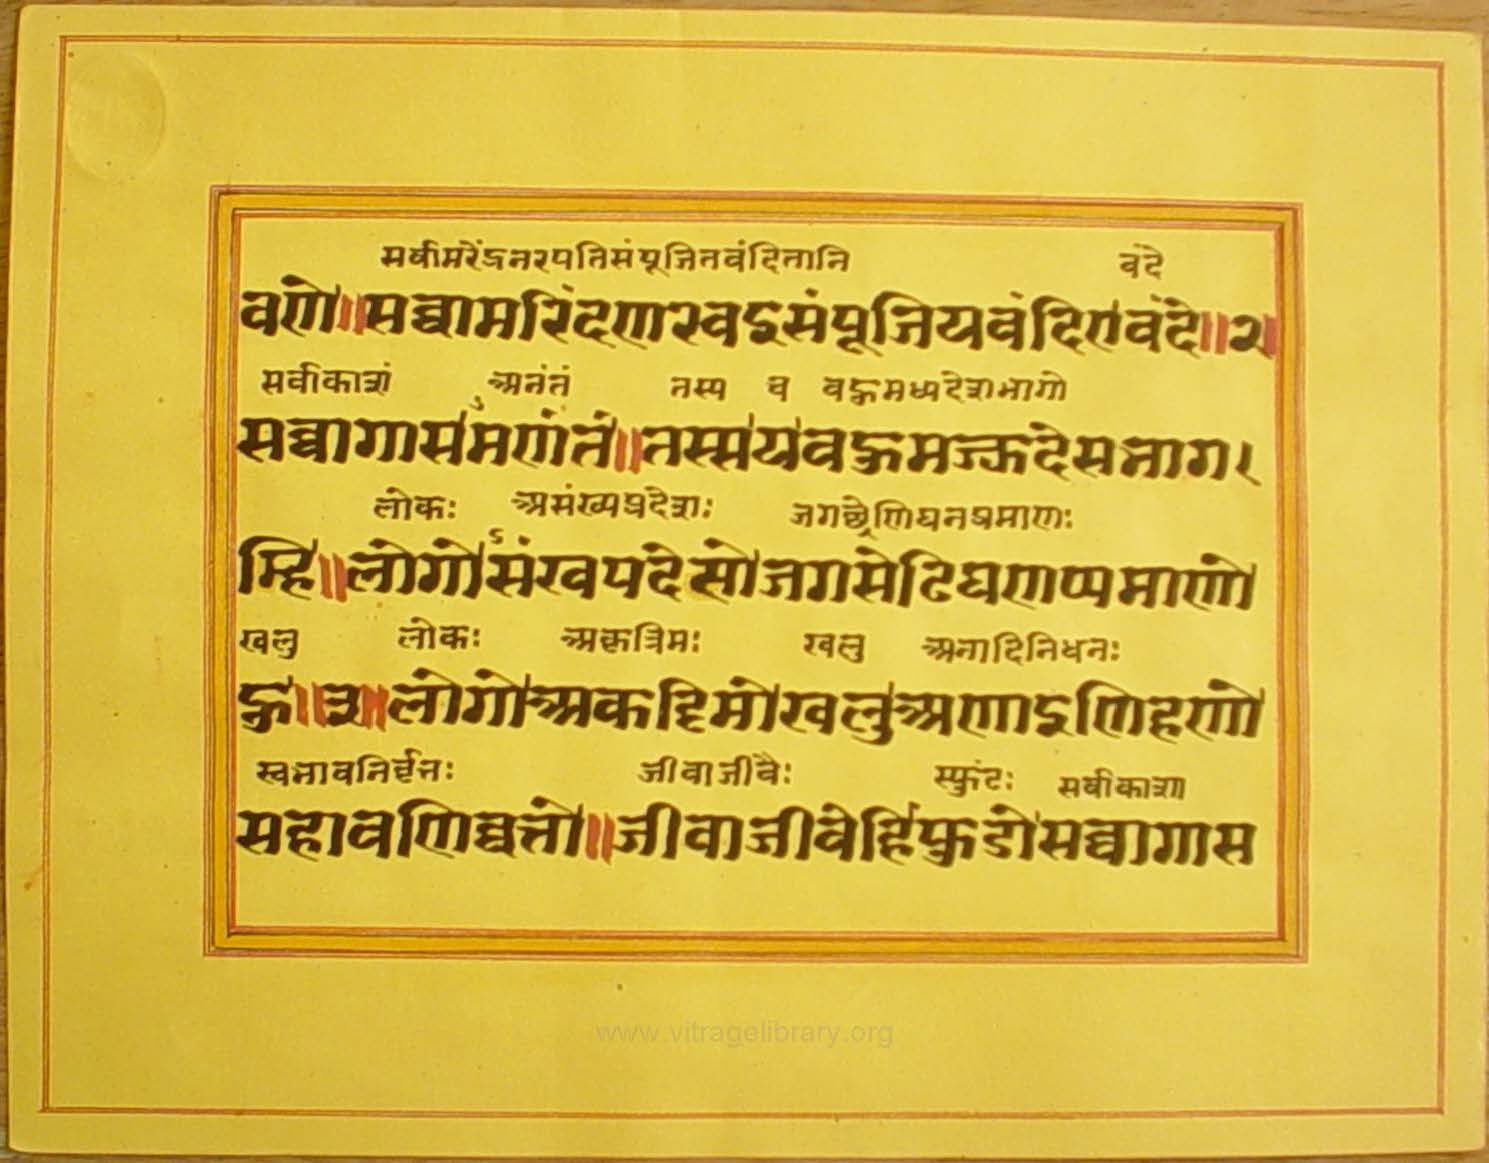 सर्वामरेंद्रनरपतिसंपूजितवंदितानि वंदे
वणे॥सव्वामरिंदणरवइसंपूजियवंदिए वंदे॥२॥
सर्वाकाशं अनंतं तस्य च बहुमध्यदेशभागे
सव्वागासमणंतं॥तस्सयबहुमज्झदेसभाग१
लोकः असंख्यप्रदेशः जगछ्रेणिघनप्रमाणः
म्हि॥लोगोऽसंखपदेसोजगसेढिघणप्पमाणो
खलु लोकः अकृत्रिमः खलु अनादिनिधनः
हु॥३॥लोगोअकट्टिमोखलुअणाइणिहणो
स्वभावनिर्वृत्तः जीवाजीवैः स्फुटः सर्वाकाशा
सहावणिव्वत्तो॥जीवाजीवेहिंफुडोसव्वागास
www.vitragelibrary.org